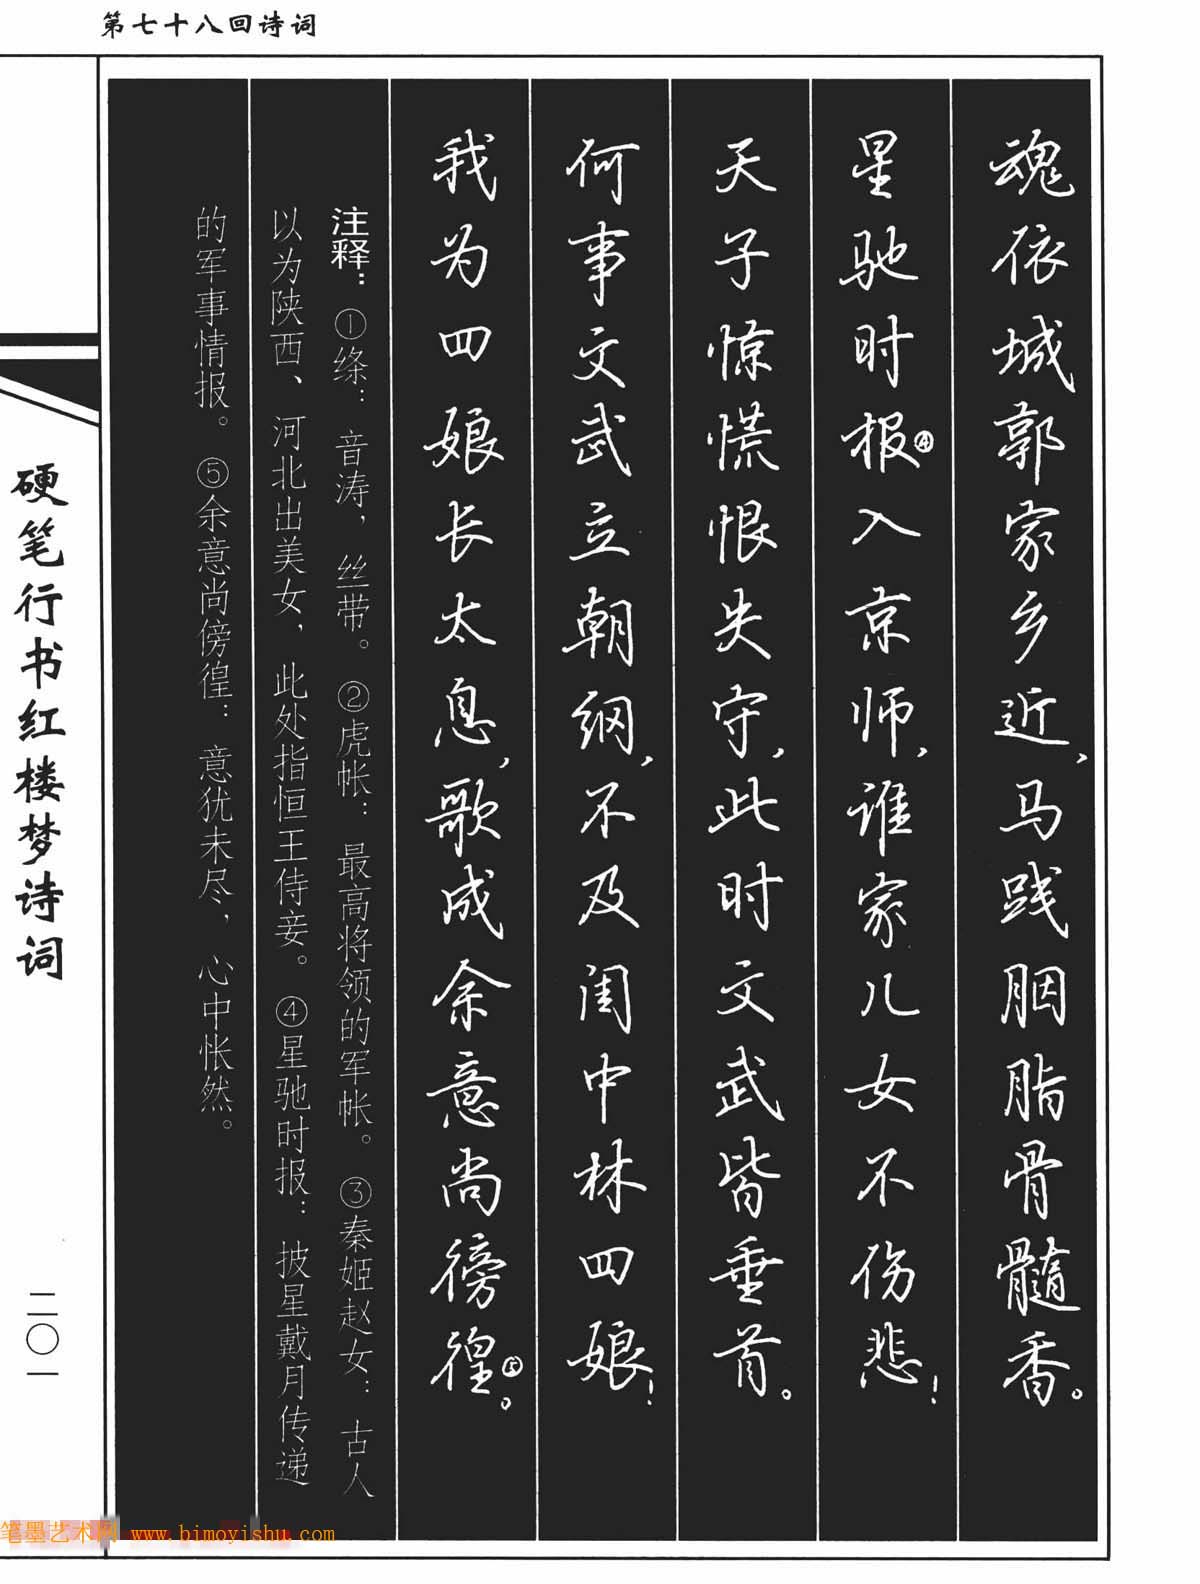 第七十八回诗词
魂依城郭家乡近，马践胭脂骨髓香。
星驰时报④入京师，谁家儿女不伤悲！
天子惊慌恨失守，此时文武皆垂首。
何事文武立朝纲，不及闺中林四娘！
我为四娘长太息，歌成余意尚徬徨⑤。
注释：①绦：音涛，丝带。②虎帐：最高将领的军帐。③秦姬赵女：古人
以为陕西、河北出美女，此处指恒王侍妾。④星驰时报：披星戴月传递
的军事情报。⑤余意尚傍徨：意犹未尽，心中怅然。
硬笔行书红楼梦诗词
二〇一
笔墨艺术网 www.bimoyishu.com